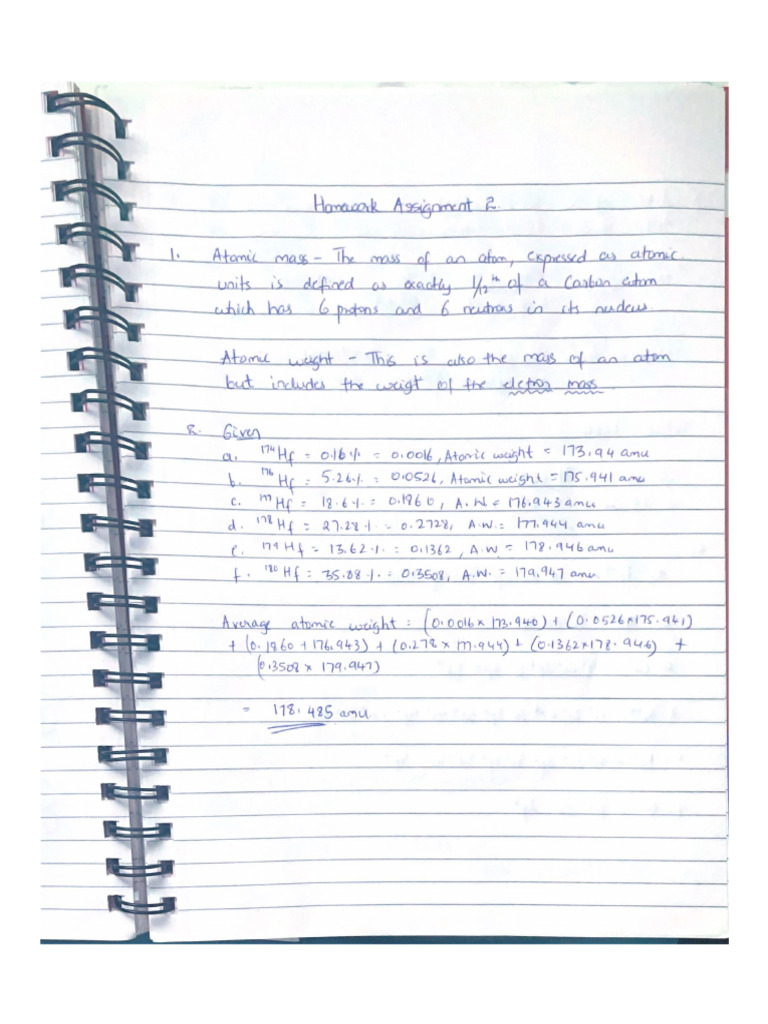 Homework Assignment 2.
1. Atomic mass - The mass of an atom, expressed as atomic
units is defined as exactly 1/12th of a Carbon atom
which has 6 protons and 6 neutrons in its nucleus.
Atomic weight - This is also the mass of an atom
but includes the weigt of the elctron mass
2. Given
a. ¹⁷⁴Hf = 0.16% = 0.0016, Atomic weight = 173.94 amu
b. ¹⁷⁶Hf = 5.26% = 0.0526, Atomic weight = 175.941 amu
c. ¹⁷⁷Hf = 18.6% = 0.1860, A.W = 176.943 amu
d. ¹⁷⁸Hf = 27.28% = 0.2728, A.W = 177.944 amu
e. ¹⁷⁹Hf = 13.62% = 0.1362, A.W = 178.946 amu
f. ¹⁸⁰Hf = 35.08% = 0.3508, A.W. = 179.947 amu.
Average atomic weight = (0.0016 x 173.940) + (0.0526 x 175.941)
+ (0.1860 + 176.943) + (0.278 x 177.944) + (0.1362 x 178.946) +
(0.3508 x 179.947)
= 178.485 amu.